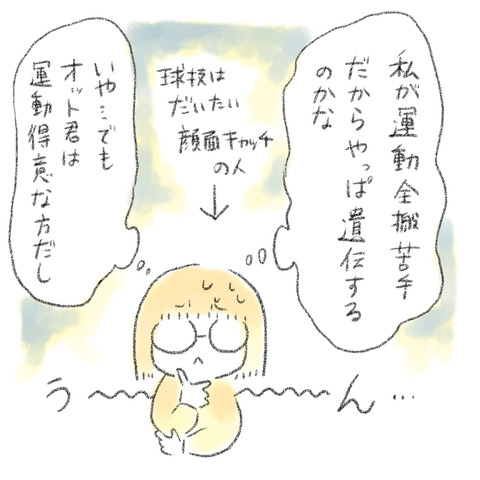 私が運動全搬苦手
だからやっぱ遺伝する
のかな
球技は
だいたい
顔面キャッチ
の人
↓
いや…でも
オット君は
運動得意な方だし
う〜〜〜ん…